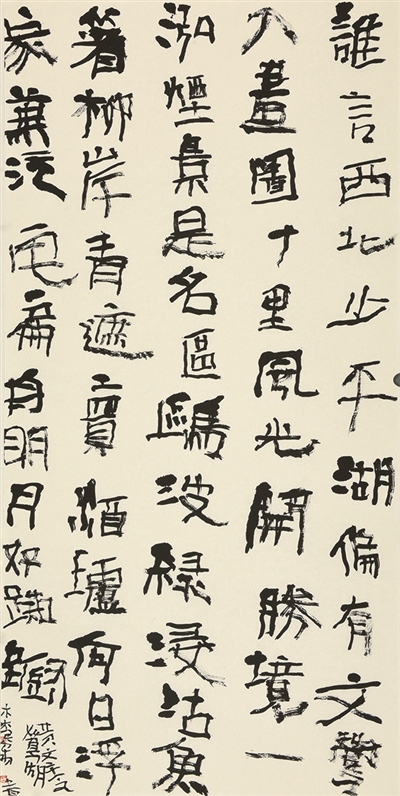 誰言西北少平湖偏有文
入畫圖十里風光開勝境一
泓煙景是名區鷗波綠浸沽魚
箸柳岸青遮賣酒壚何日浮
家兼泛宅扁舟明月如踟躕